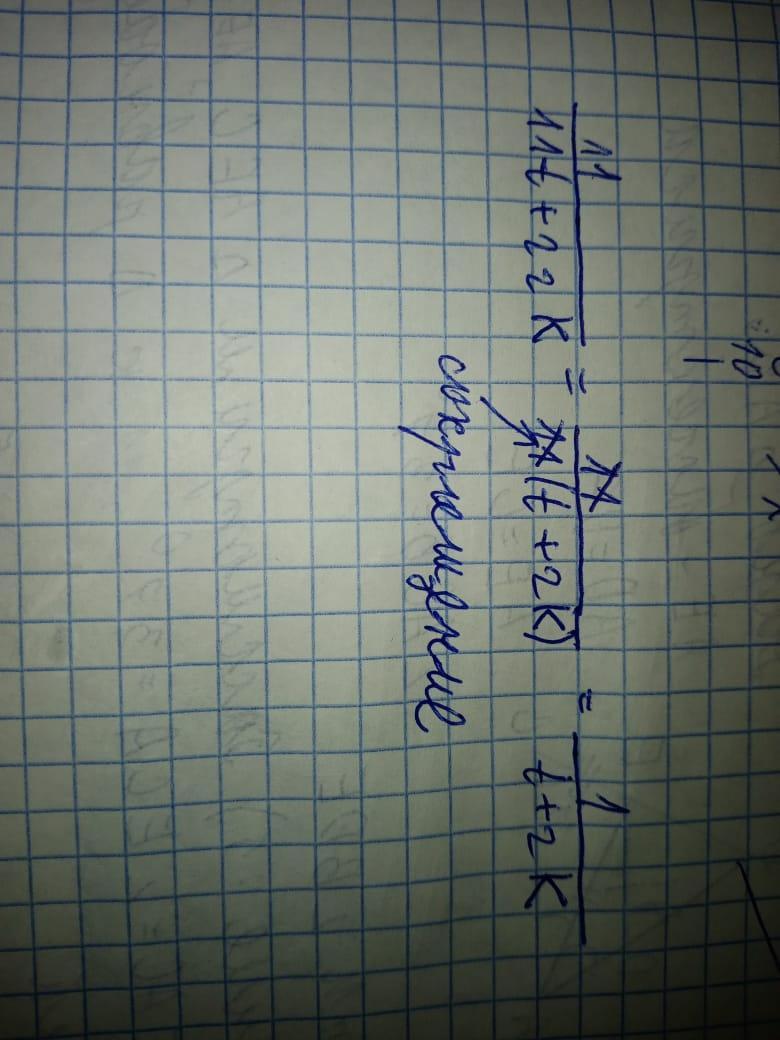 11/(11t+22K) = 11/(11(t+2K)) = 1/(t+2K)
сокращение
10
1